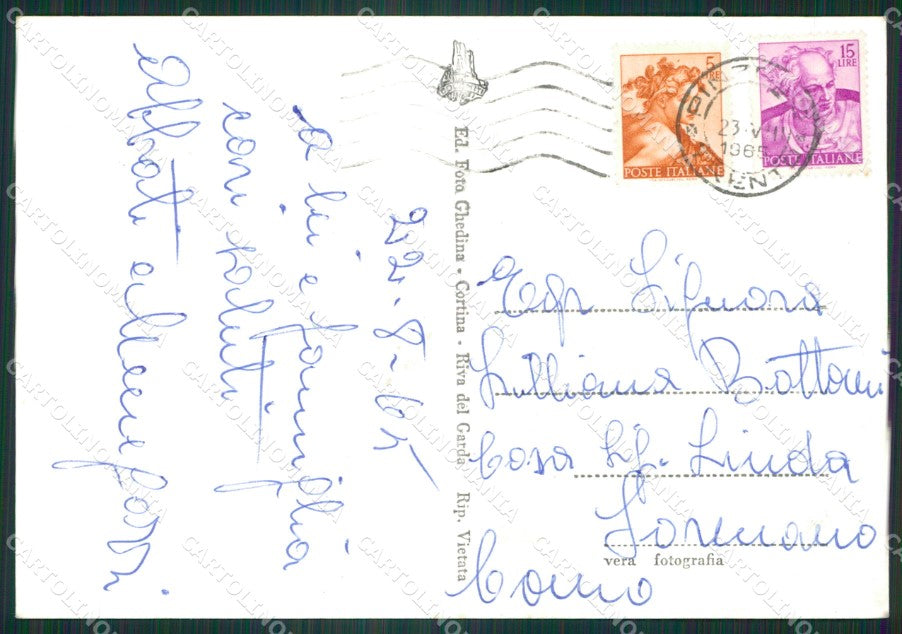 22-8-65
a lei e famiglia
cari saluti
Ed. Foto Ghedina - Cortina - Riva del Garda Rip. Vietata
5 LIRE
POSTE ITALIANE
15 LIRE
POSTE ITALIANE
23.VIII
1965
Egr Signora
Lilliana Bottani
Casa Sig. Linda
Sormano
Como
vera fotografia
CARTOLINOMANIA